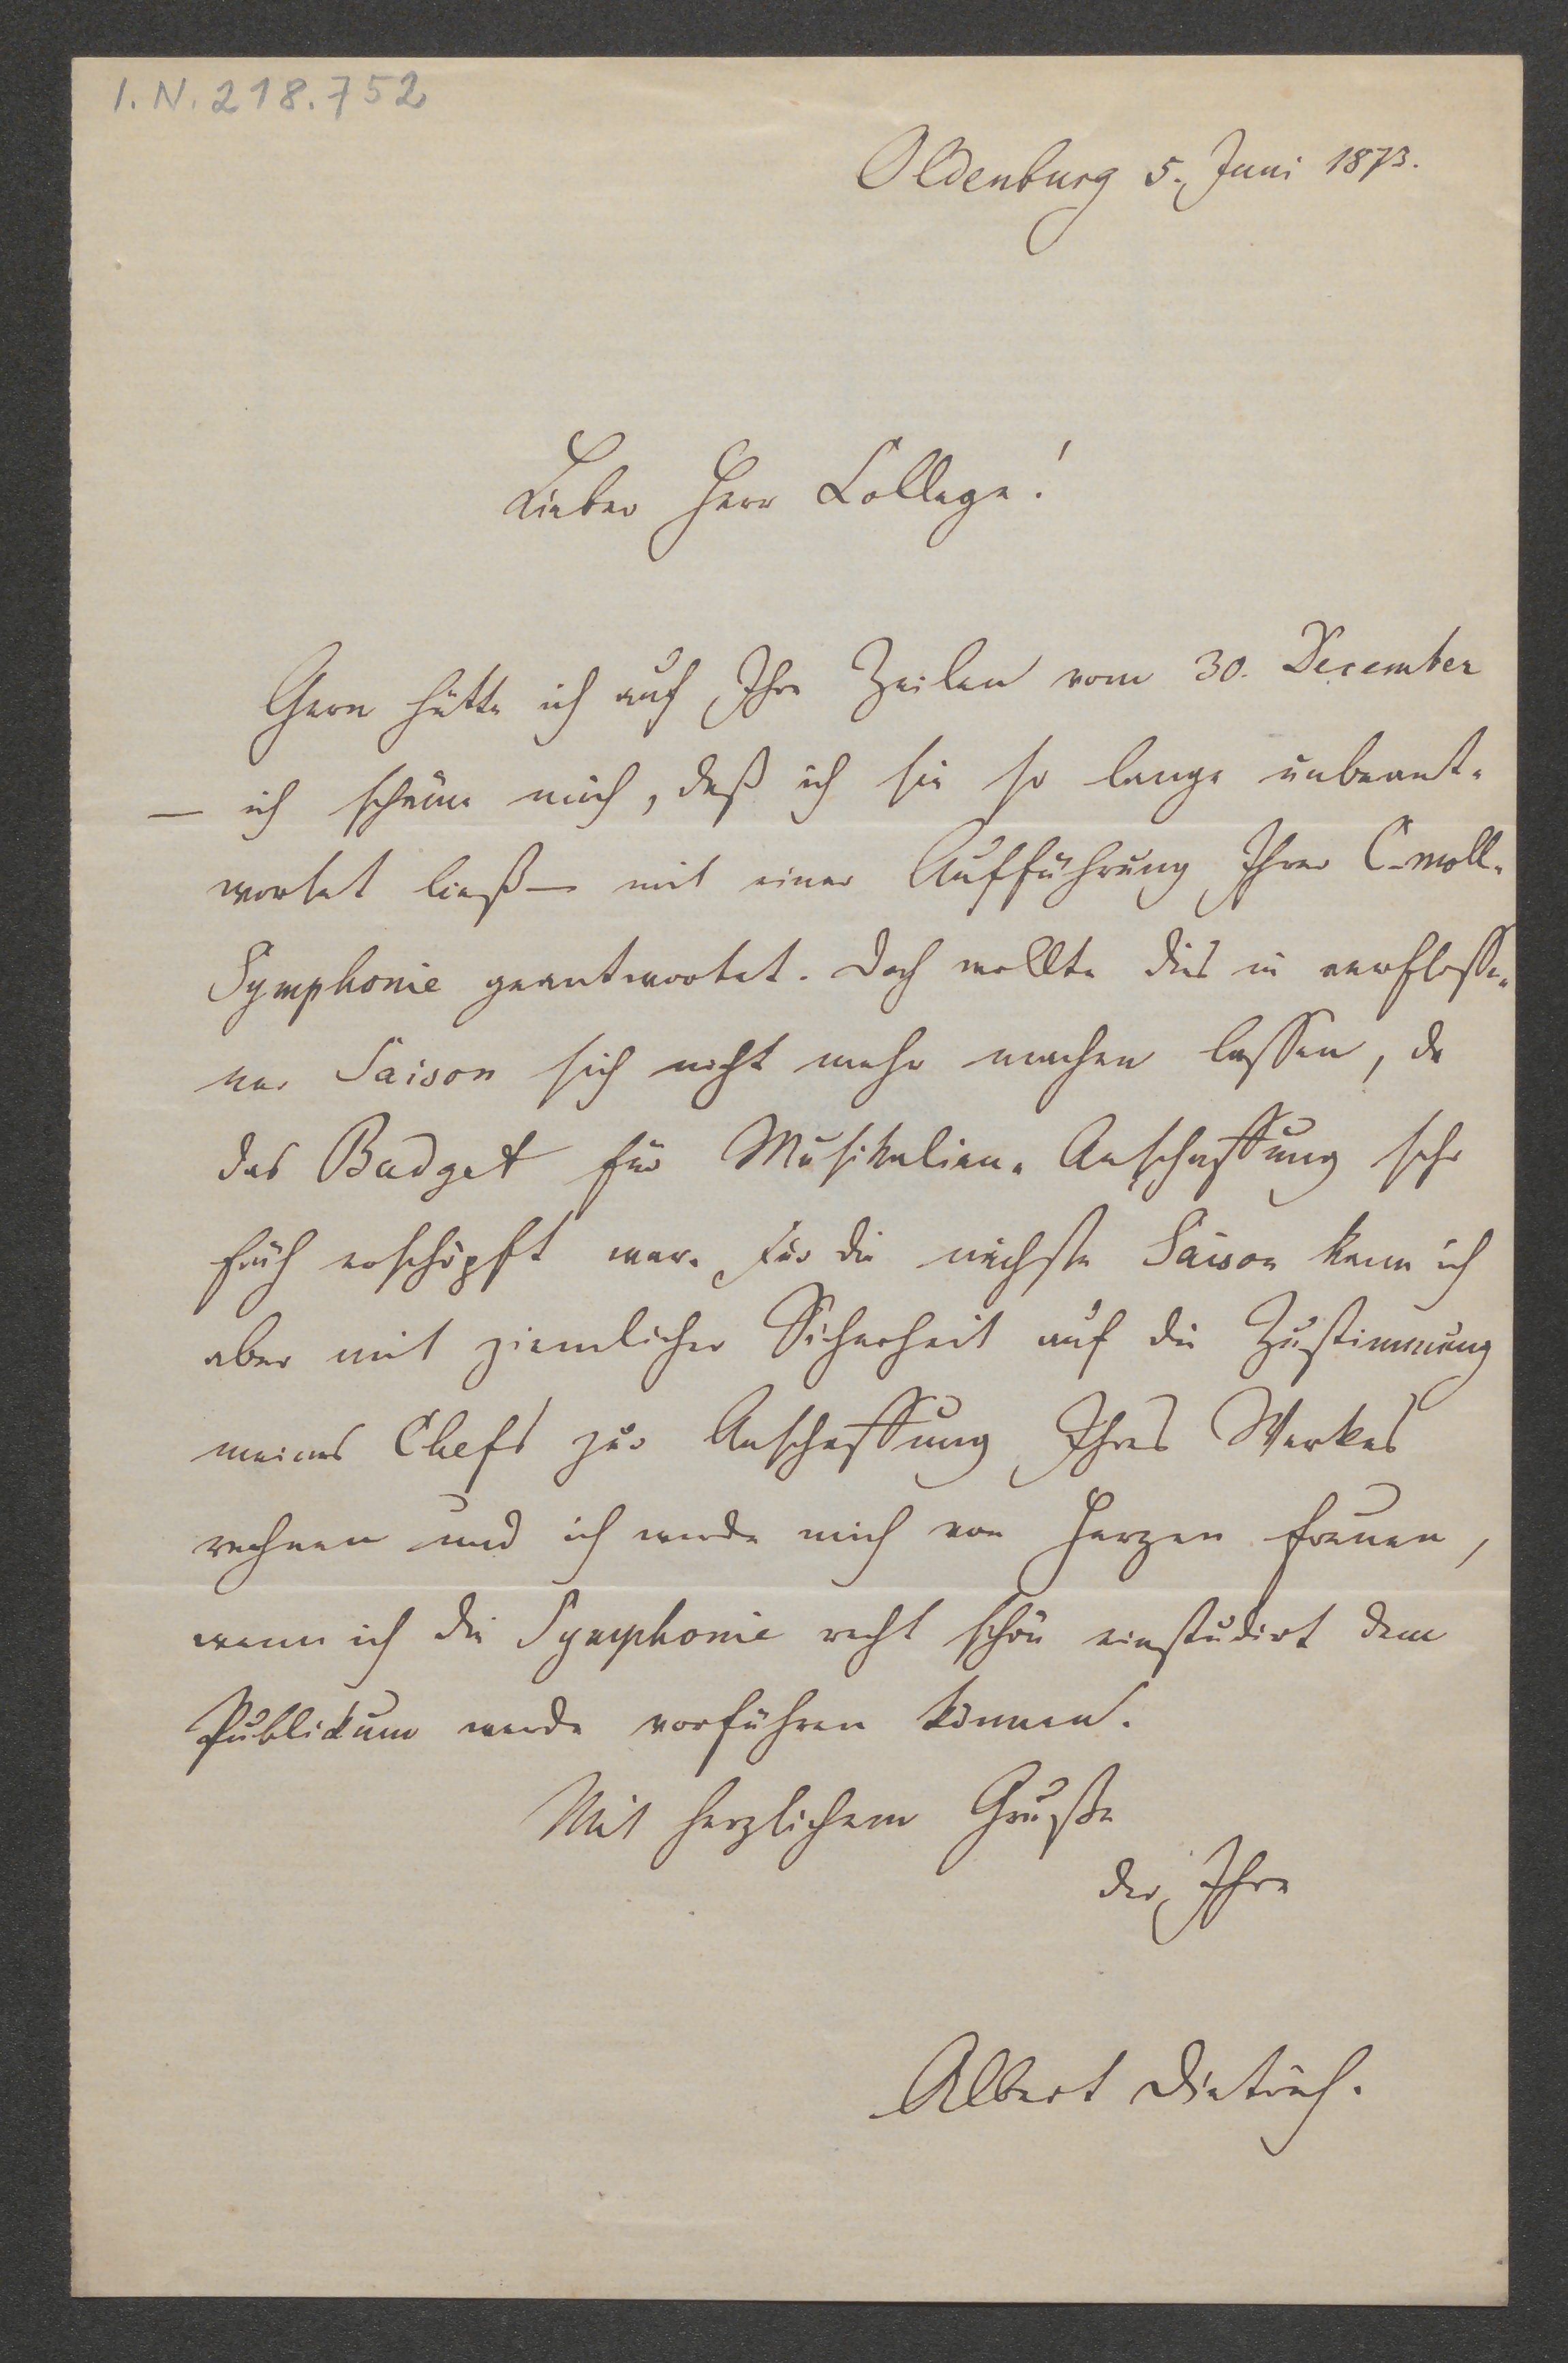 I.N. 218.752
Oldenburg 5. Juni 1873.
Lieber Herr College!
Gern hätte ich auf Ihre Zeilen vom 30. December
— ich schäme mich, daß ich sie so lange unbeant-
wortet ließ — mit einer Aufführung Ihrer C-moll-
Symphonie geantwortet. Doch wollte dies in verflosse-
ner Saison sich nicht mehr machen lassen, da
das Budget für Musikalien-Anschaffung sehr
früh erschöpft war. Für die nächste Saison kann ich
aber mit ziemlicher Sicherheit auf die Zustimmung
meines Chefs zur Anschaffung Ihres Werkes
rechnen und ich werde mich von Herzen freuen,
wenn ich die Symphonie recht schön einstudirt dem
Publikum werde vorführen können.
Mit herzlichem Gruße
der Ihre
Albert Dietrich.